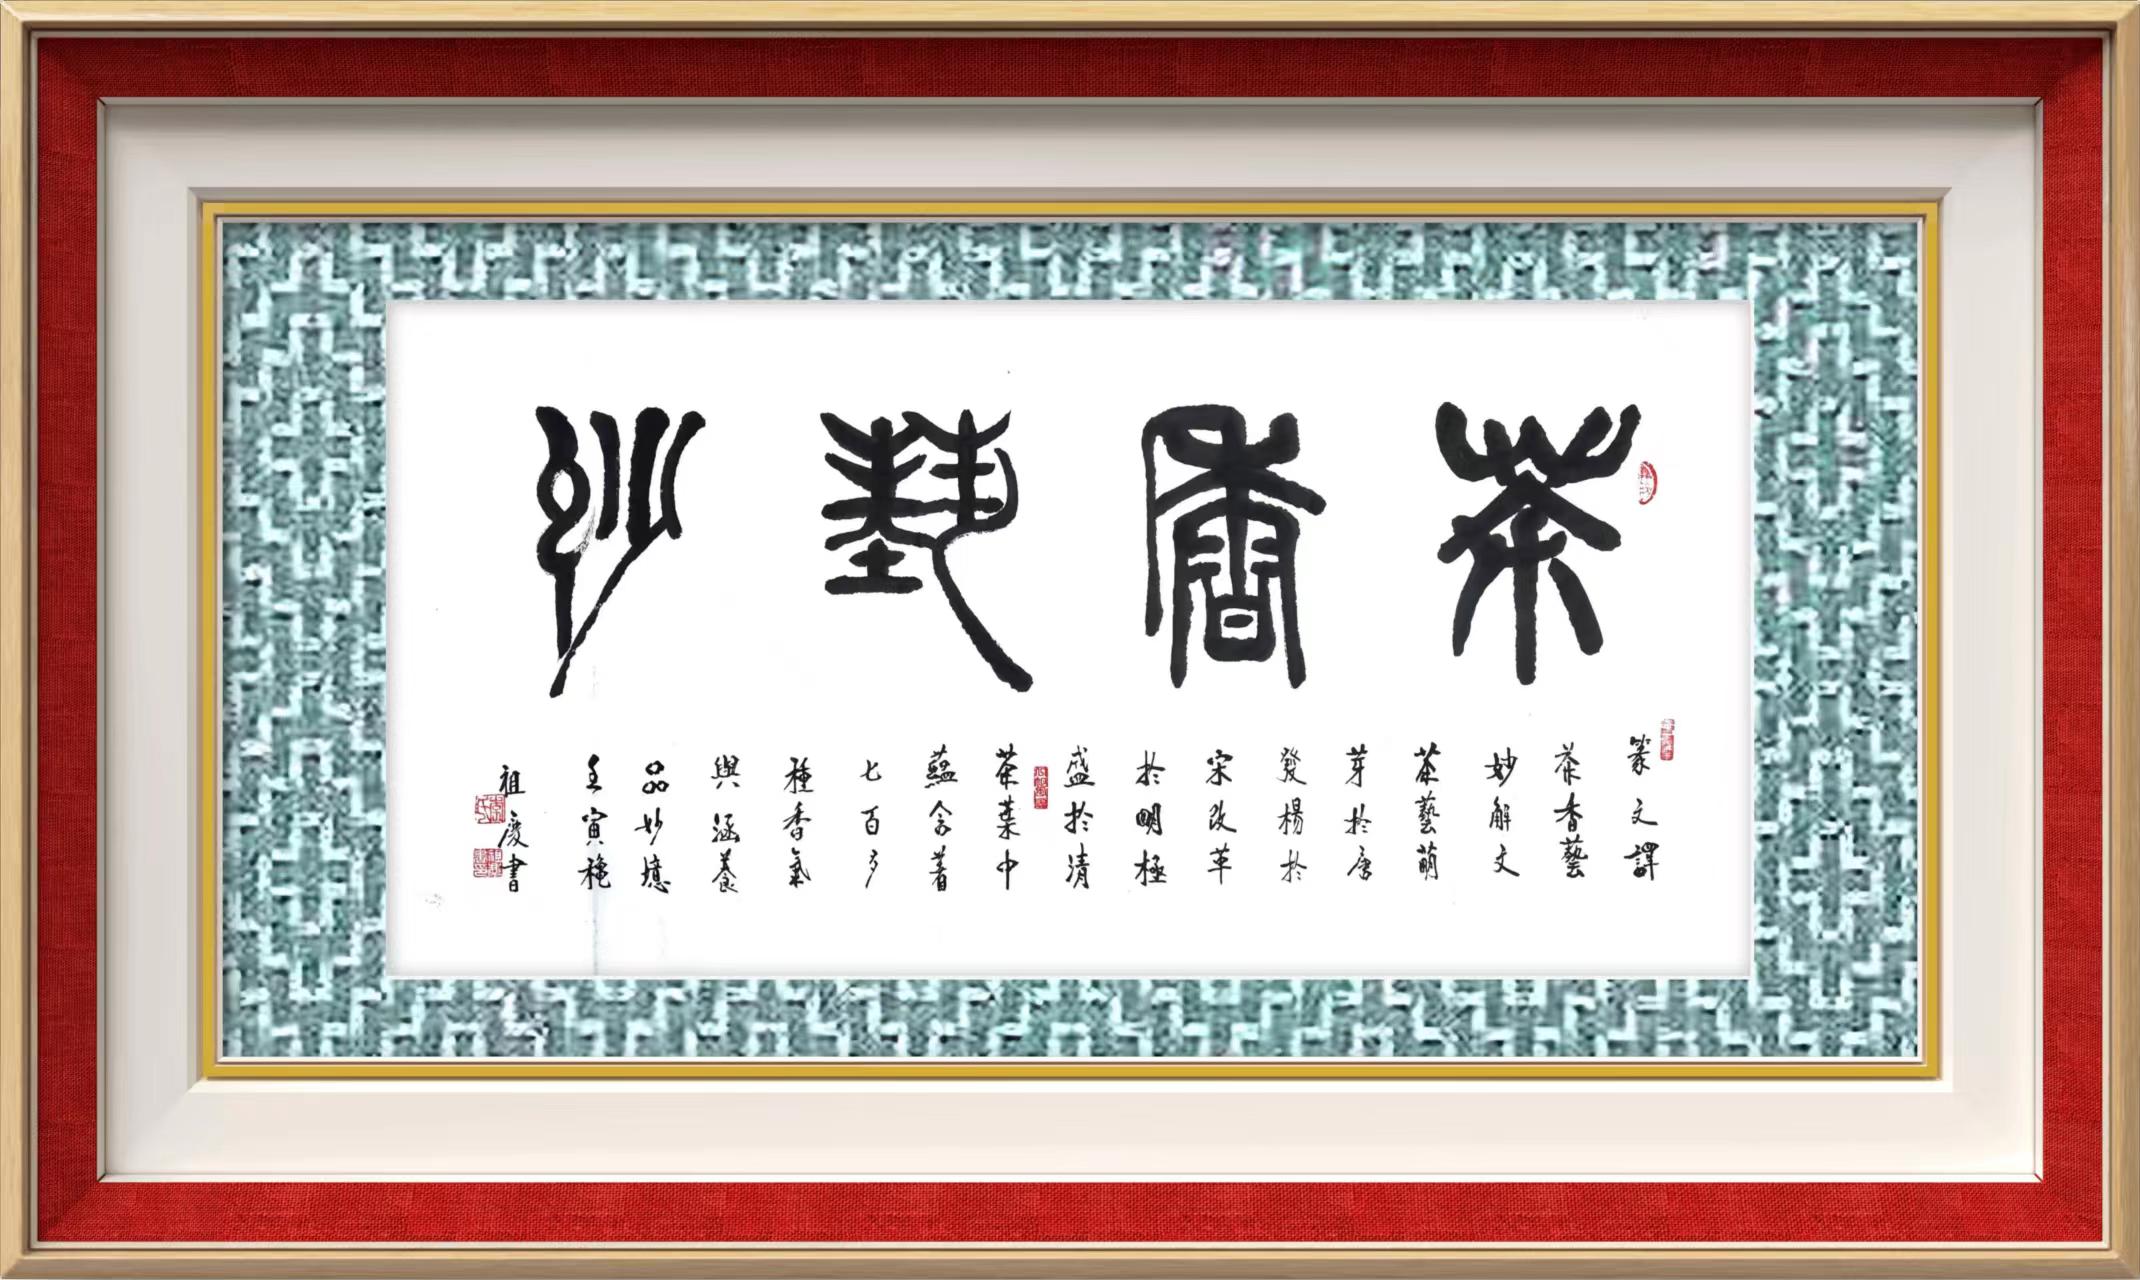 茶香藝妙
篆文譯
茶香藝
妙解文
茶藝萌
芽於唐
發楊於
宋改革
於明極
盛於清
茶葉中
蘊含著
七百多
種香氣
與涵養
品妙境
壬寅穐
祖慶書